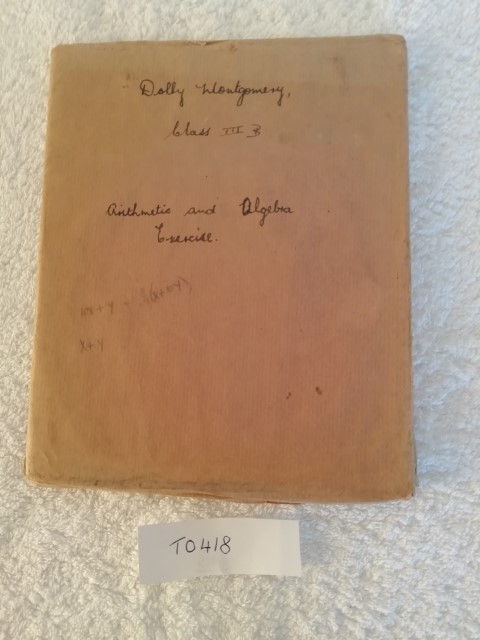 Dolly Montgomery,
Class III B
Arithmetic and Algebra
Exercise.
10x + y
x + y
TO418